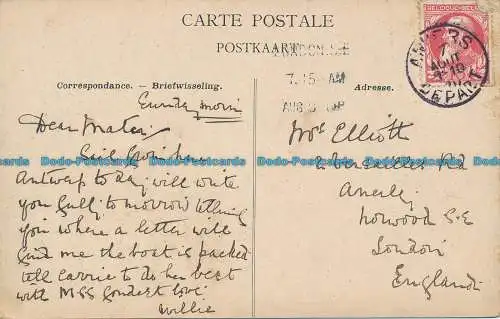 CARTE POSTALE
POSTKAART
LONDON. S.E
7.15 AM
AUG 8
BELGIQUE
ANVERS
7
AOUT
DEPART
Correspondance. – Briefwisseling.
Adresse.
Sunday morn
Dear Mater,
Sail from here
Antwerp to day will write
you fully to morrow telling
you where a letter will
find me the boat is packed
tell Carrie to do her best
with MSS fondest love
Willie
Mrs Elliott
2 Versailles Rd
Anerley
Norwood S.E
London
England
Dodo-Postcards Dodo-Postcards Dodo-Postcards Dodo-Postcards Dodo-Postcards